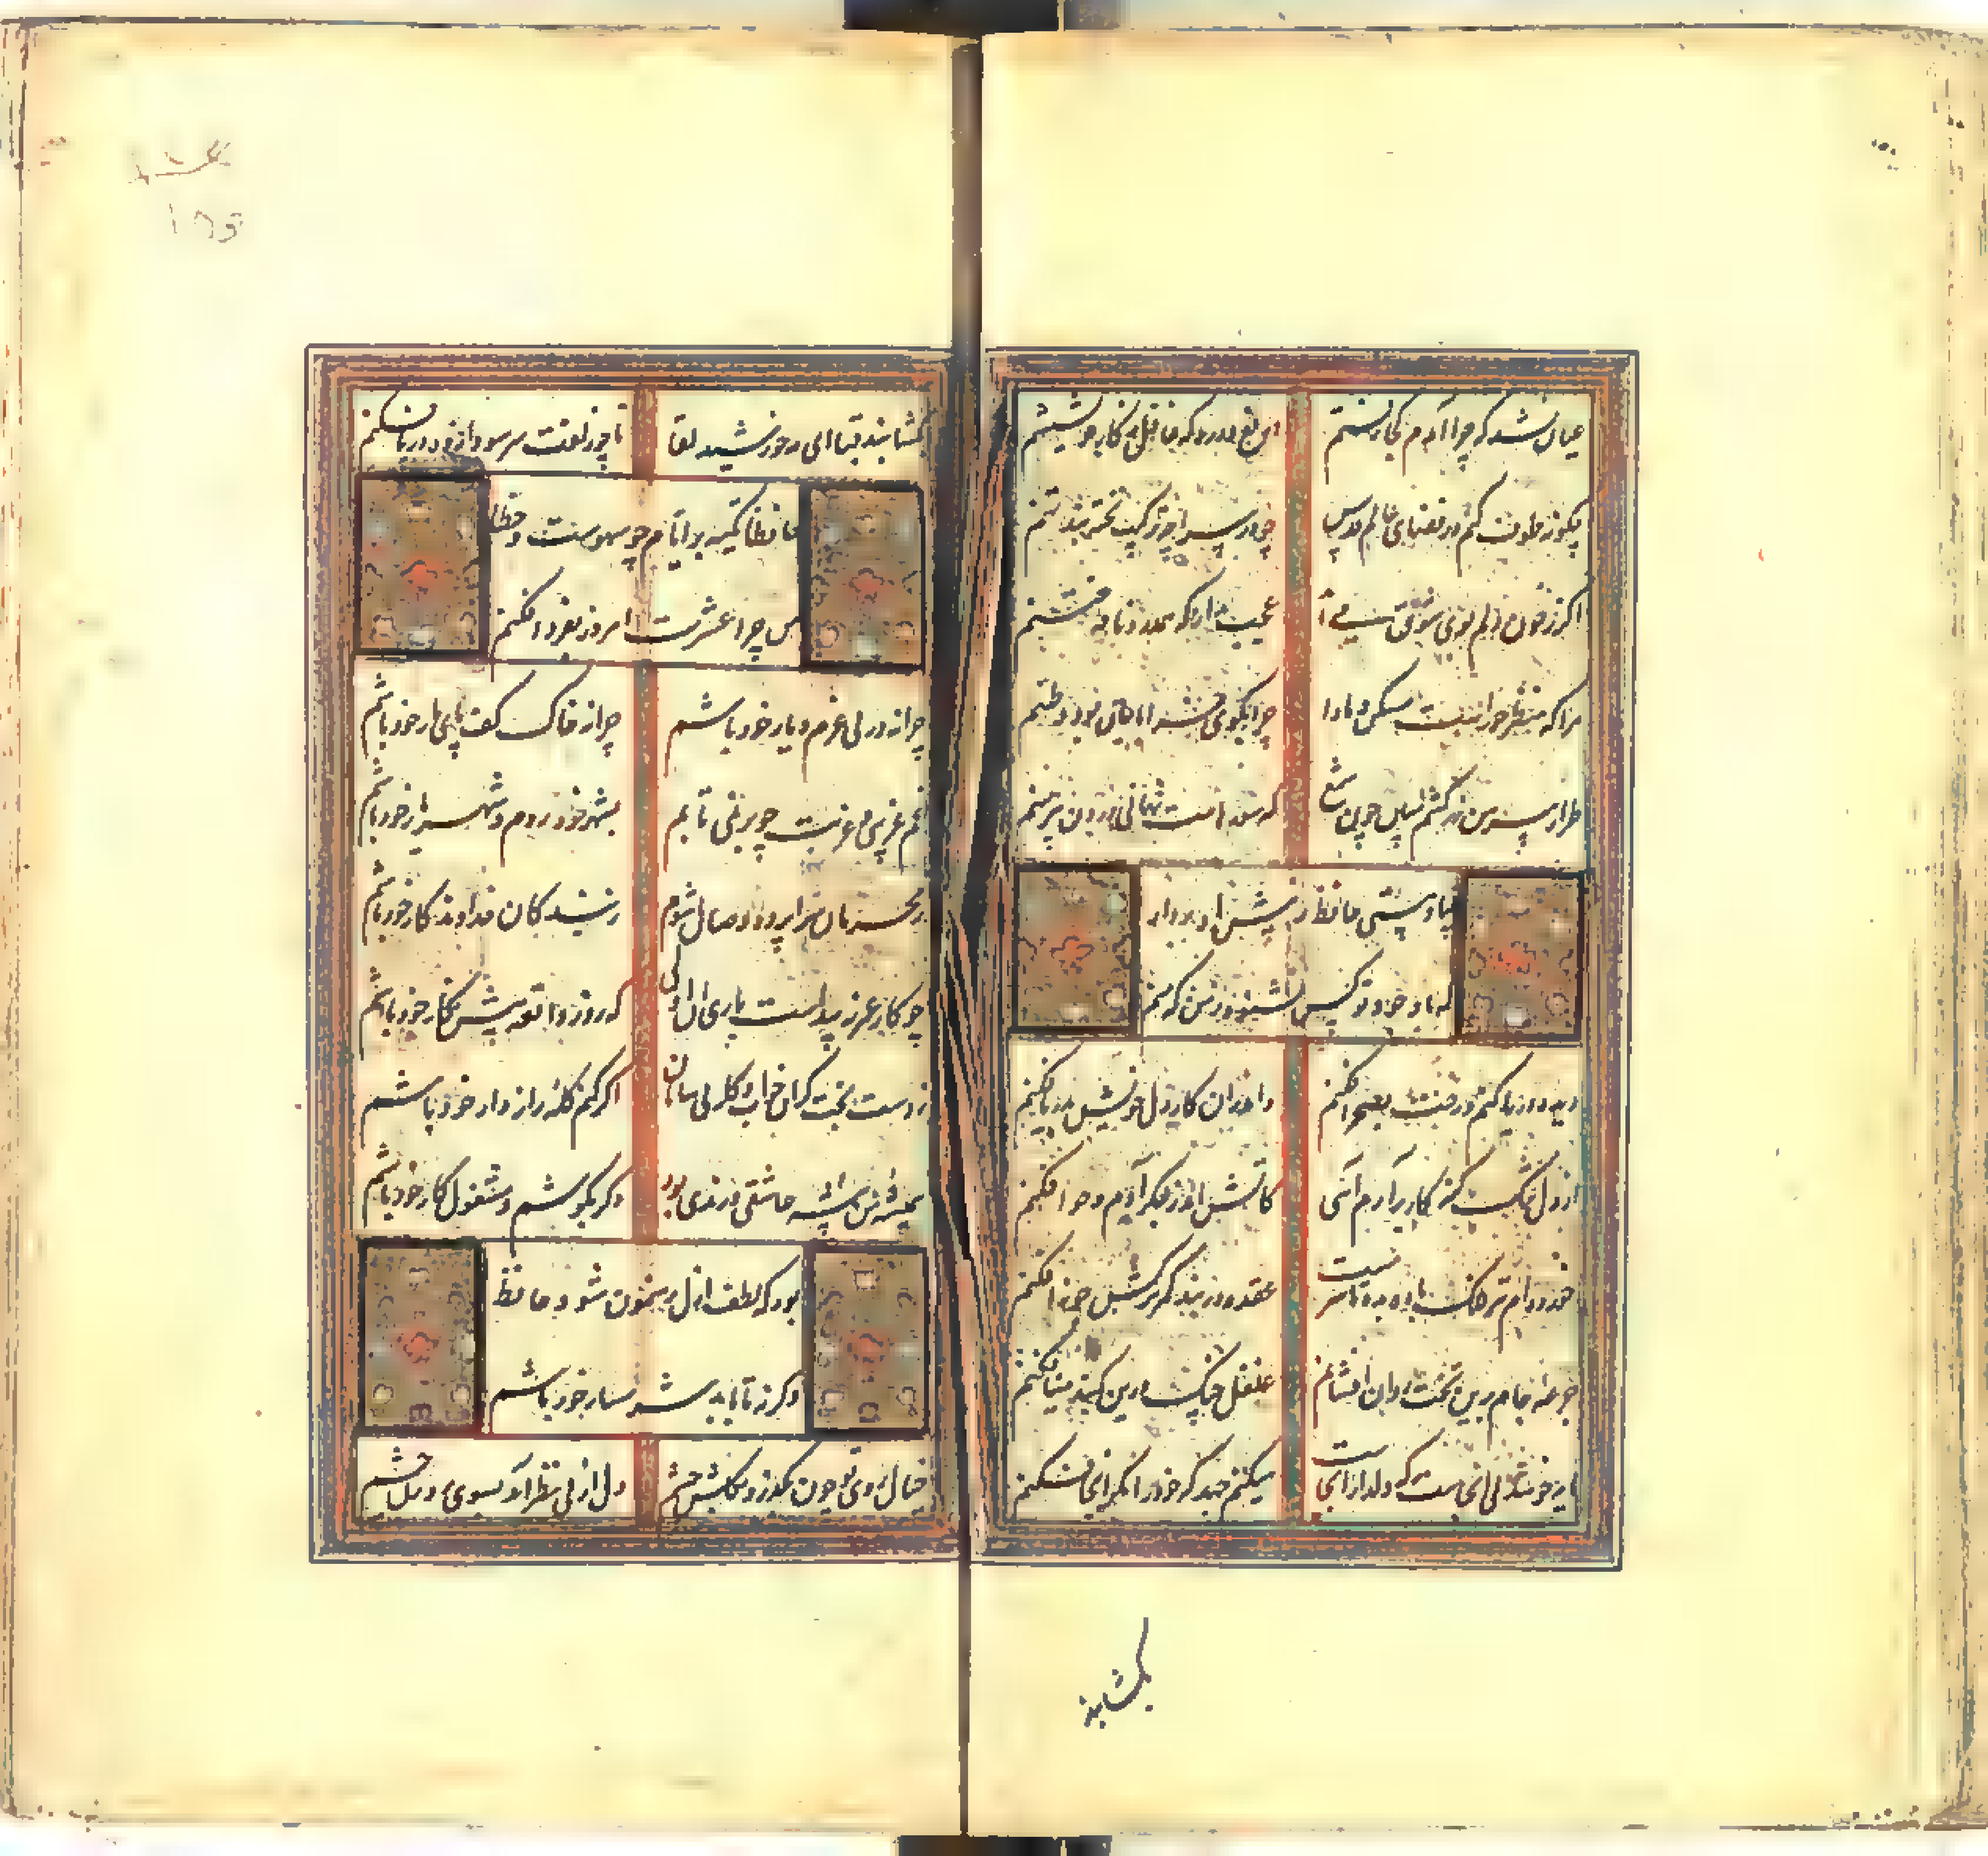 عیان نشد که چرا آمدم کجا رفتم
که غافل ز کار خویشتنم
چگونه طوف کنم در فضای عالم قدس
چو در سراچه ترکیب تخته بند تنم
اگر ز خون دلم بوی شوق می آ
عجب مدار که همدرد نافه ختنم
مرا که منظر حورست مسکن و ماوا
چرا بکوی خراباتیان بود وطنم
طراز پیرهن زرکشم مبین چون شمع
که سوزهاست نهانی درون پیرهنم
بیا و هستی حافظ ز پیش او بردار
که با وجود تو کس نشنود ز من که منم
دیده دریا کنم و رخت بصحرا فکنم
و اندرین کار دل خویش بدریا فکنم
از دل تنگ گنه کار برآرم آهی
کاتش اندر جگر آدم و حوا فکنم
خورده ام تیر فلک باده بده تا سرمست
عقده در بند کمر ترکش جوزا فکنم
جرعه جام برین تخت روان افشانم
غلغل چنگ درین گنبد مینا فکنم
مایه خوشدلی آنجاست که دلدار آنجاست
میکنم جهد که خود را مگر آنجا فکنم
بگشا بند
بگشا بند قبا ای مه خورشید لقا
تا چو زلفت سر سودازده در پا فکنم
حافظا تکیه بر ایام چو سهوست و خطا
من چرا عشرت امروز بفردا فکنم
چرا نه در پی عزم دیار خود باشم
چرا نه خاک کف پای یار خود باشم
غم غریبی و غربت چو بر نمی تابم
بشهر خود روم و شهریار خود باشم
ز محرمان سراپرده وصال شوم
ز بندگان خداوندگار خود باشم
چو کار عمر نه پیداست باری آن اولی
که روز واقعه پیش نگار خود باشم
ز دست بخت گران خواب و کار بی سامان
اگر کنم گله راز دار خود باشم
همیشه پیشه من عاشقی و رندی بود
دگر بکوشم و مشغول کار خود باشم
بود که لطف ازل رهنمون شود حافظ
وگرنه تا بابد شرمسار خود باشم
خیال روی تو چون بگذرد بگلشن چشم
دل از پی نظر آید بسوی روزن چشم